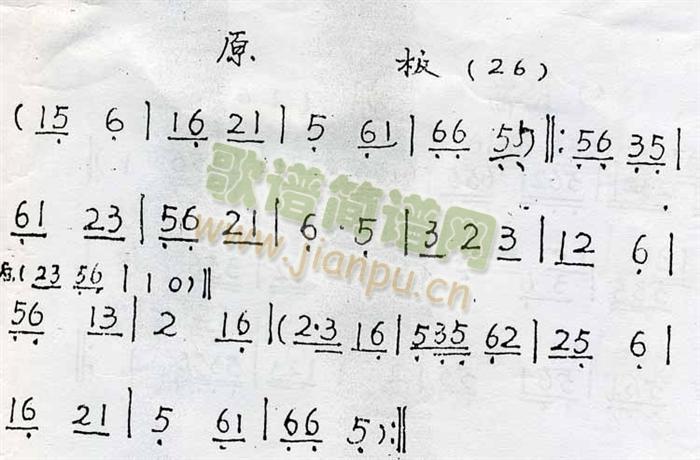 原 板 (26)
(15 6 | 16 21 | 5 61 | 66 55) ‖: 56 35 |
61 23 | 56 21 | 6 · 5 | 3 2 3 | 12 6 |
(23 56 | 1 0) ‖
56 13 | 2 16 | (2·3 16 | 535 62 | 25 6 |
16 21 | 5 61 | 66 5) :‖
歌谱简谱网
www.jianpu.cn